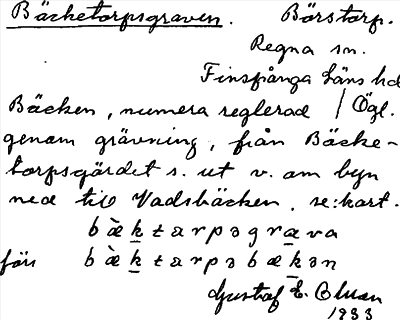 Bäcketorpsgraven. Börstorp.
Regna sn.
Finspånga läns hd
Bäcken, numera reglerad / Ögl.
genom grävning, från Bäcke-
torpsgärdet s. ut v. om byn
ned till Vadsbäcken. se: kart.
bæ̀ktarpsgræva
förr bæ̀ktarpsbækən
Gustaf E. Oluan
1933